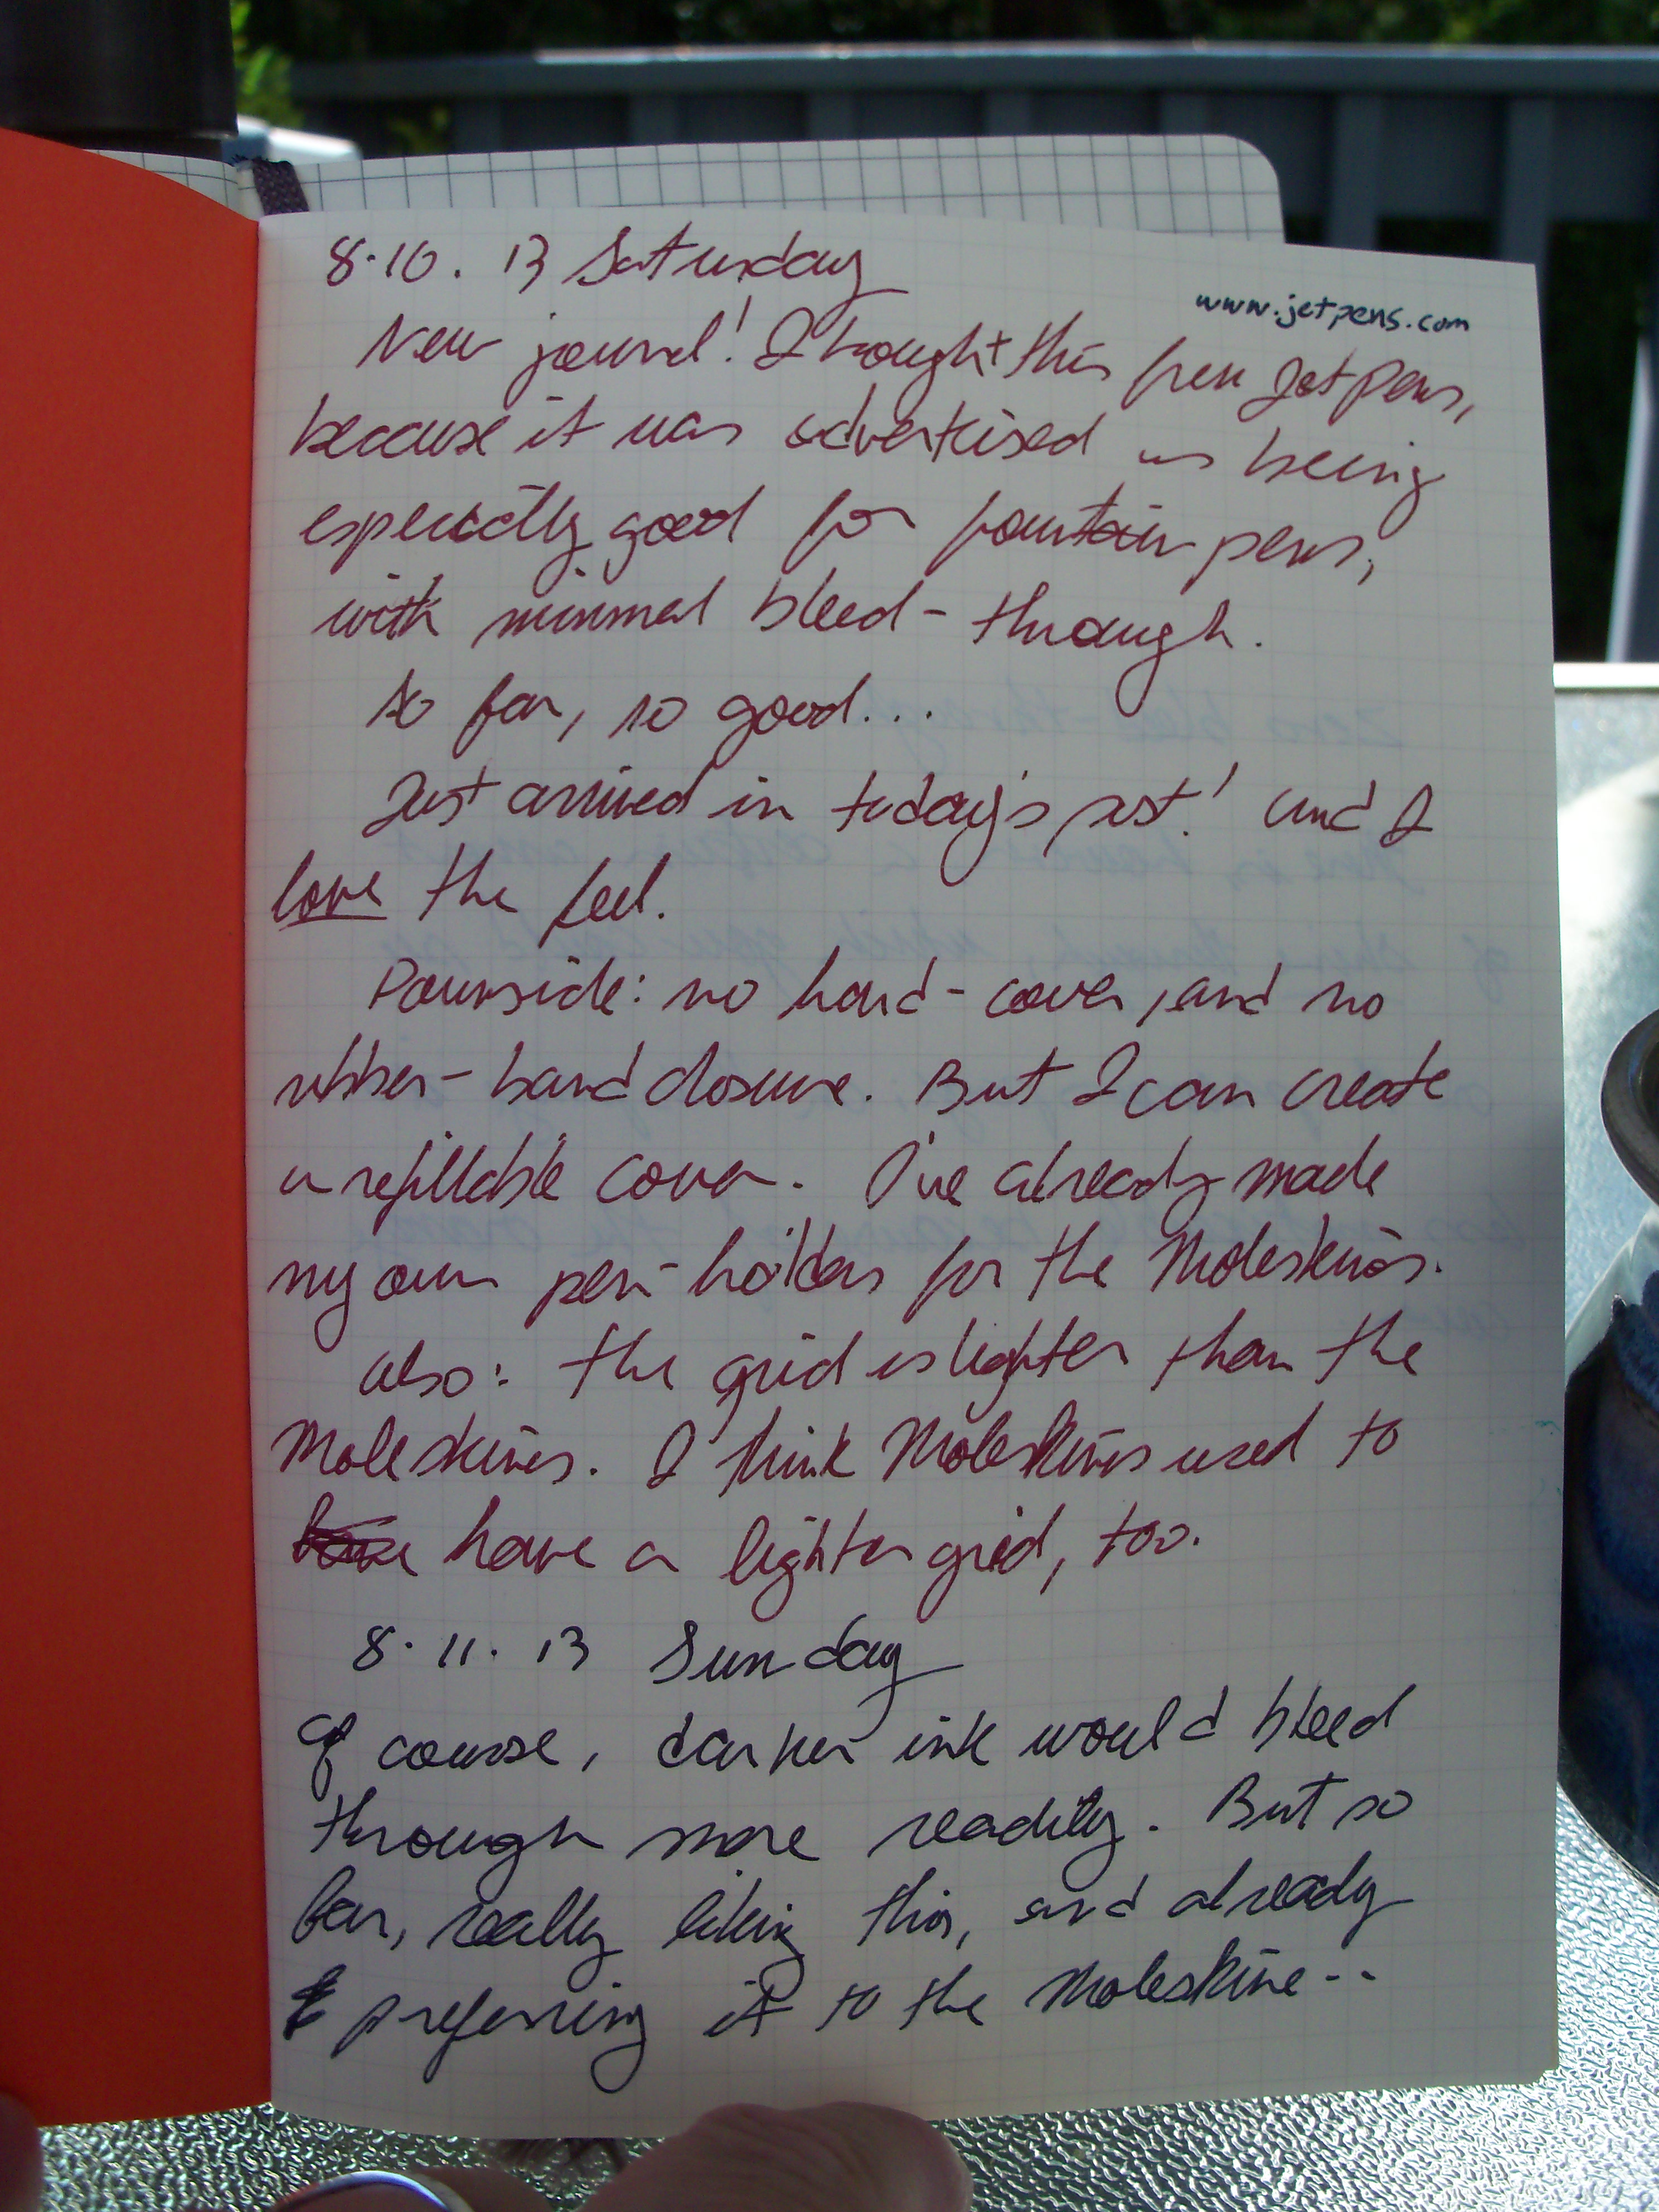 8.10.13 Saturday
www.jetpens.com
New journal! I bought this from Jet Pens,
because it was advertised as being
especially good for fountain pens,
with minimal bleed-through.
So far, so good...
Just arrived in today's post! And I
love the feel.
Downside: no hard-cover, and no
rubber-band closure. But I can create
a refillable cover. I've already made
my own pen-holders for the Moleskines.
Also: the grid is lighter than the
Moleskines. I think Moleskines used to
have a lighter grid, too.
8.11.13 Sunday
Of course, darker ink would bleed
through more readily. But so
far, really liking this, and already
preferring it to the Moleskine--